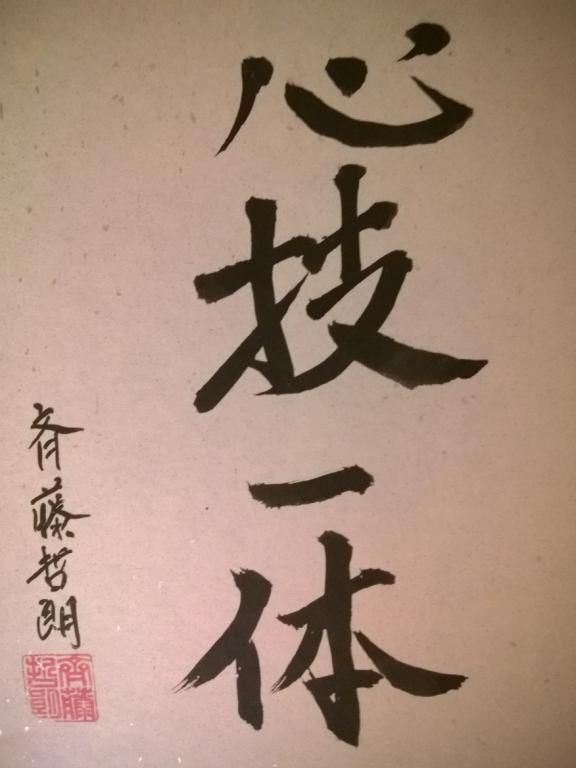 心技一体
斉藤哲朗